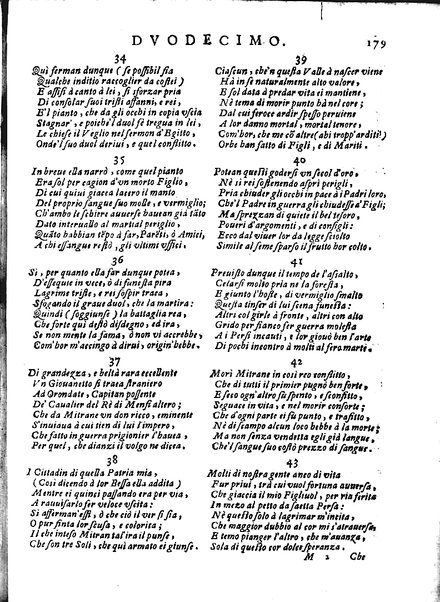 DVODECIMO. 179
34
Quì ferman dunque (se possibil sia
Qualche inditio raccoglier da costei)
E assisi à canto à lei, si sforzar pria
Di consolar suoi tristi affanni, e rei,
E'l pianto, che da gli occhi in copia vscia
Stagnar, e poiche'l duol fè tregua in lei,
Le chiese il Veglio nel sermon d'Egitto,
Onde'l suo duol deriui, e quel conflitto.
35
In breue ella narrò, come quel pianto
Era sol per cagion d'vn morto Figlio,
Di cui quiui giacea lacero il manto
Del proprio sangue suo molle, e vermiglio;
Ch'ambo le schiere auuerse haueau già tāto
Dato interuallo al martial periglio,
Quāto habbian tēpo à far, Parēti, ò Amici,
A chi essangue restò, gli vltimi vffici.
36
Sì, per quanto ella far dunque potea,
D'esseque in vece, ò di funesta pira
Lagrime triste, e rei sospir traea,
Sfogando il graue duol, che la martira:
Quindi (soggiunse) la battaglia rea,
Che forte quì destò disdegno, ed ira,
Se non mente la fama, ò non vi accrebbe,
Com'hor m'accingo à dirui, origin'hebbe.
37
Di grandezza, e beltà rara eccellente
Vn Giouanetto si traea straniero
Ad Orondate, Capitan possente
De' Caualier del Rè di Mensi altero;
Che da Mitrane vn don ricco, eminente
S'inuiaua à cui tien di lui l'impero,
Che fatto in guerra prigionier l'hauea,
Per quel, che dianzi il volgo ne dicea.
38
I Cittadin di questa Patria mia,
(Così dicendo à lor Bessa ella addita)
Mentre ei quinci passando era per via,
A rauuisarlo fer veloce vscita:
Sì affermand'essi, ò che ciò il ver si sia,
O pur finta lor scusa, e colorita;
Il che inteso Mitran tal'ira il punse,
Che son tre Soli, che quì armato ei giunse.
39
Ciascun, che'n questa Valle à nascer viene
Hà in se naturalmente alto valore,
E sol data à predar vita ei mantiene,
Nè tema di morir punto hà nel core;
Dal cui feroce ardir spesso peruiene
A lor danno mortal, mortal tenore,
Com'hor, che me cō altre (ahi tropp'arditi!)
Orbe han fatto di Figli, e di Mariti.
40
Potean questi godersi vn secol d'oro,
Nè i rei sostenendo aspri perigli,
Pria chiuder gli occhi in pace à i Padri loro,
Che'l Padre in guerra gli chiudesse à'Figli;
Ma sprezzan di quiete il bel tesoro,
Poueri d'argomenti, e di consigli:
Ecco dal viuer lor da legge sciolto
Simile al seme sparso il frutto hor colto.
41
Preuisto dunque il tempo de l'assalto,
Celarsi molto pria ne la foresta,
E giunto l'hoste, di vermiglio smalto
Questa tinser di lui scena funesta:
Altri col girle à fronte, altri con alto
Grido per fianco fer guerra molesta
A i Persi incauti, e lor giouò ben l'arte
Di pochi incontro à molti al fero marte.
42
Morì Mitrane in così reo conflitto,
Che di tutti il primier pugnò ben forte,
E seco ogn'altro suspento, e sconfitto,
Seguace in vita, e nel morir consorte;
Che d'ogni parte ei fù punto, e trafitto,
Nè di scampo alcun loco hebbe à la morte;
Ma non senza vendetta egli già langue,
Che'l sangue suo costò prezzo di sangue.
43
Molti di nostra gente anco di vita
Fur priui, trà cui vuol fortuna auuersa,
Che giaccia il mio Figliuol, per ria ferita
In mezo al petto da saetta Persa:
Nè questo solo à lagrimar m'incita,
Che maggior dubbio al cor mi s'atrauersa,
E temo pianger l'altro, che m'auanza,
Sola di questo cor dolce speranza.
M 2 Che